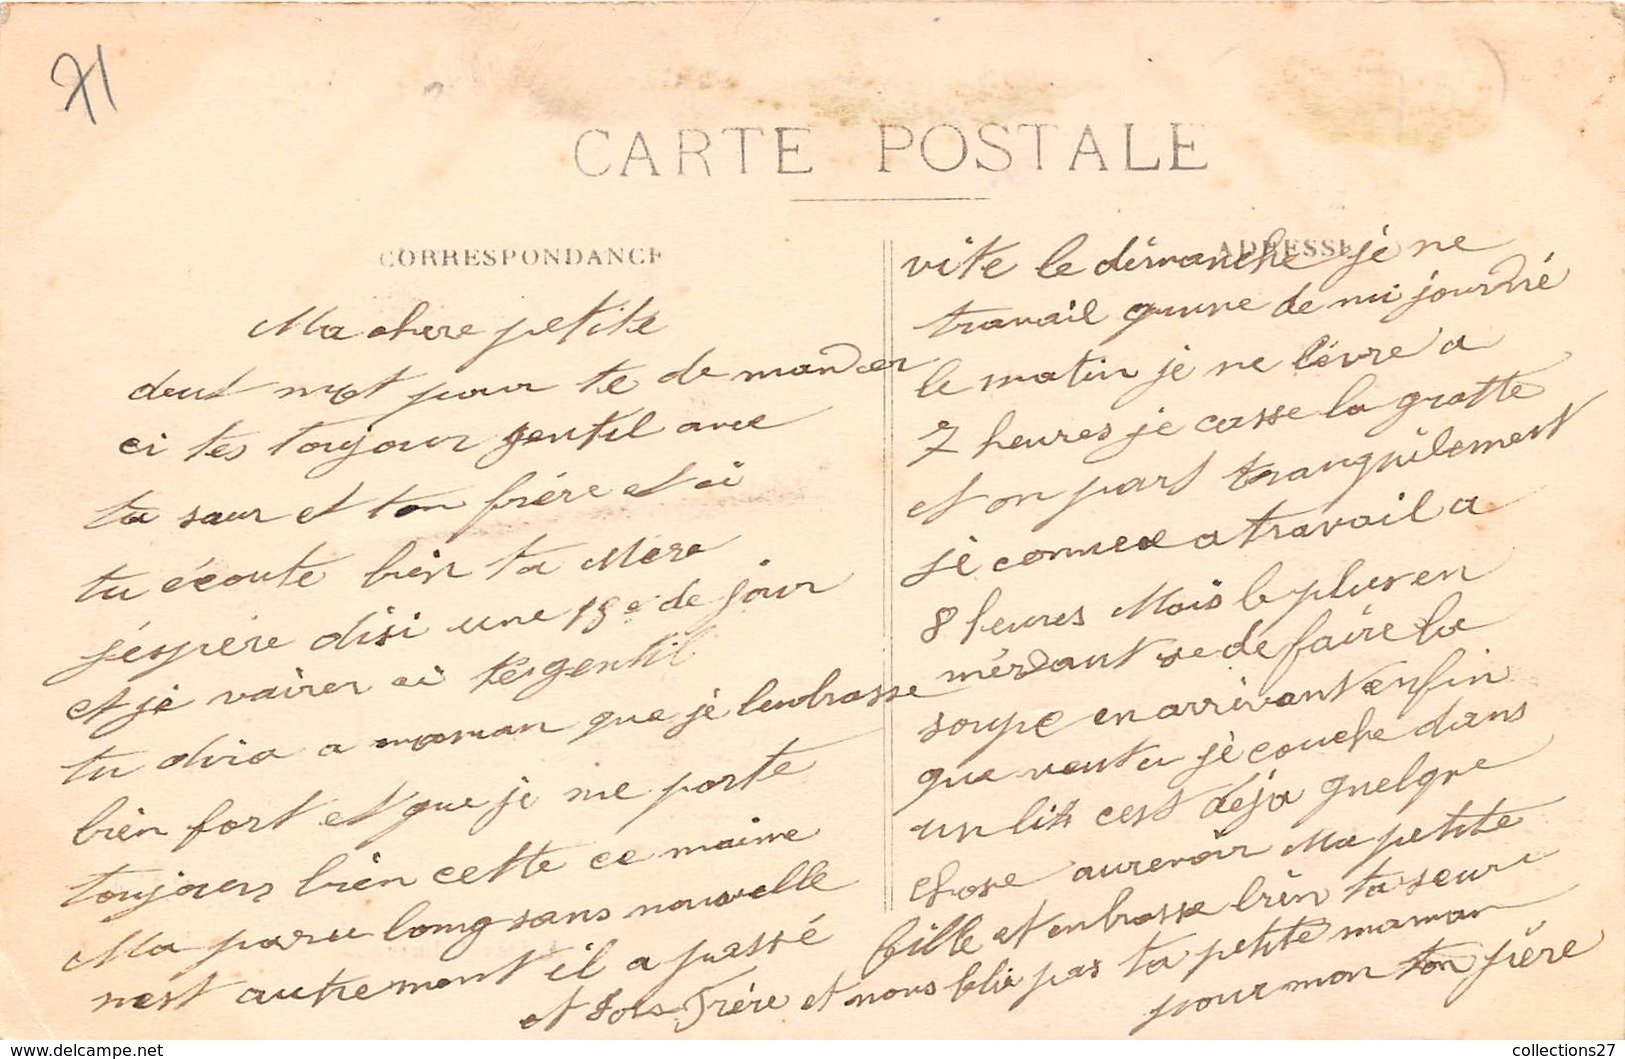 71
CARTE POSTALE
CORRESPONDANCE
Ma chere petite
deut mot pour te de mander
ci tes toujour gentil avec
ta saeur et ton frére et ci
tu écoute bien ta Mère
j'éspére disi une 15e de jour
et je vairer ci tes gentil
tu dira a maman que je lenbrasse
bien fort et que je me porte
toujours bien cette ce maine
Ma paru long sans nouvelle
nest autrement il a passé
ADRESSE
vite le dimanche je ne
travail qune de mi journé
le matin je ne lévre a
7 heures je casse la grotte
et on part tranquilement
je conmce a travail a
8 heures Mois le plus en
mérdant se de faire la
soupe en arrivant enfin
que veut tu je couche dans
un lit cest déja quelque
chose aurevoir Ma petite
fille et enbrasse bien ta seur
et Frère et nous blie pas ta petite maman
pour mon ton père
collections27